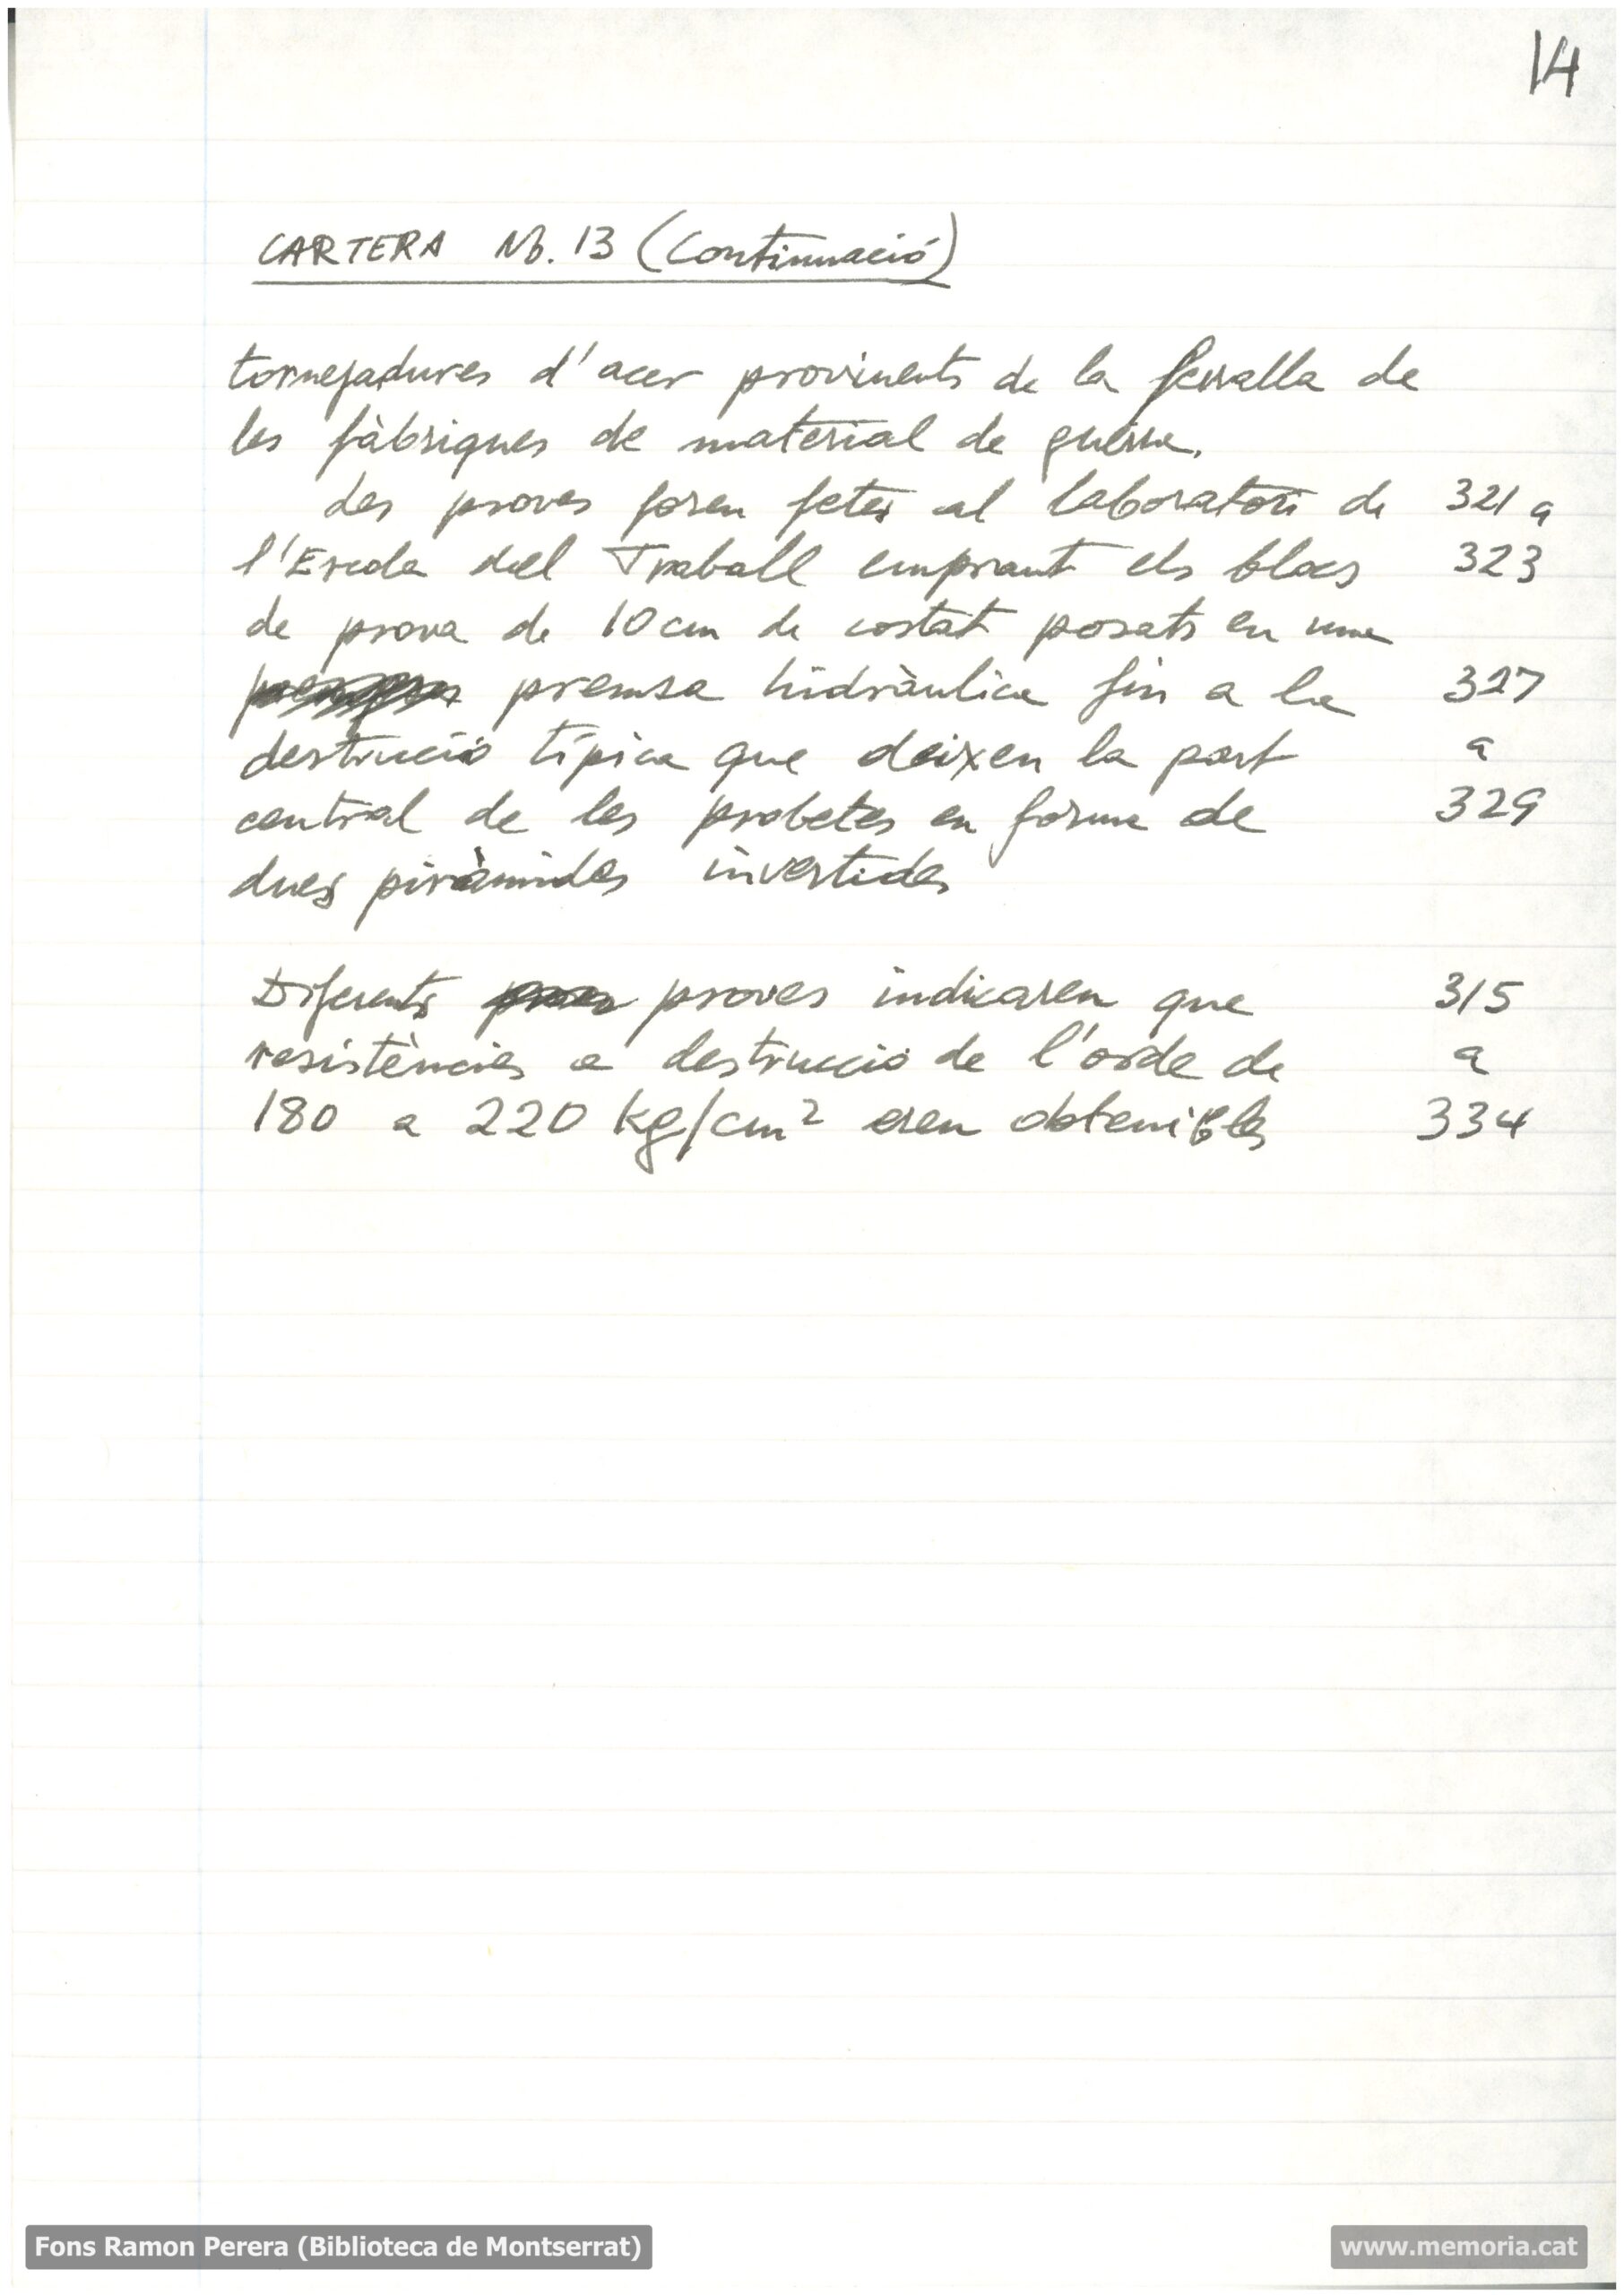 14
CARTERA No. 13 (Continuació)
tornejadures d'acer provinents de la ferralla de
les fàbriques de material de guerra.
Les proves foren fetes al laboratori de 321 a
l'Escola del Traball emprant els blocs 323
de prova de 10 cm de costat posats en una
premsa hidràulica fin a la 327
destrucció típica que deixen la part a
central de les probetes en forma de 329
dues piràmides invertides
Diferents proves indicaren que 315
resistències a destrucció de l'orde de a
180 a 220 kg/cm² eren obtenibles 334
Fons Ramon Perera (Biblioteca de Montserrat)
www.memoria.cat